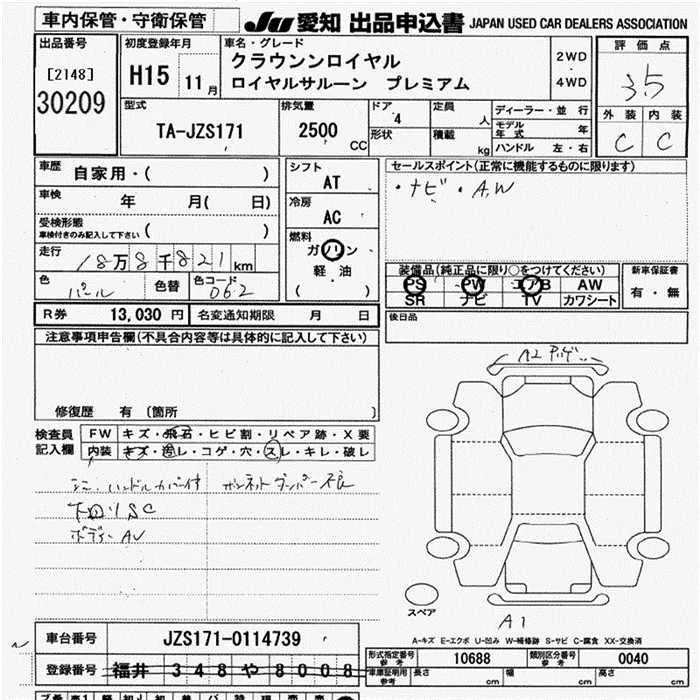 車内保管・守衛保管
JU 愛知 出品申込書 JAPAN USED CAR DEALERS ASSOCIATION
出品番号
[2148]
30209
初度登録年月
H15 11月
車名・グレード
クラウンンロイヤル
ロイヤルサルーン プレミアム
2WD
・
4WD
評価点
3.5
外装 内装
C C
型式
TA-JZS171
排気量
2500 CC
ドア
4
形状
定員 人
積載 kg
ディーラー・並行
モデル年式 年
ハンドル 左・右
車歴 自家用・( )
車検 年 月( 日)
受検形態
車検付きのみ記入して下さい ( )
走行 18万8千821km
色 パール 色替 色コード 062
シフト
AT
冷房
AC
燃料
ガソリン
・
軽・油
( )
セールスポイント(正常に機能するものに限ります)
・ナビ・A.W
装備品(純正品に限り○をつけてください)
PS PW エアB AW
SR ナビ TV カワシート
新車保証書
有・無
R券 13,030円 名変通知期限 月 日
後日品
注意事項申告欄(不具合内容等は具体的に記入して下さい)
修復歴 有 〔箇所 〕
検査員記入欄
FW キズ・飛石・ヒビ割・リペア跡・X要
内装 キズ・汚レ・コゲ・穴・スレ・キレ・破レ
ハンドルカバー付 ボンネットダンパー不良
下回りSC
ボディーAU
A2
スペア
A1
A-キズ E-エクボ U-凹み W-補修跡 S-サビ C-腐食 XX-交換済
車台番号 JZS171-0114739
登録番号 福井 348や8008
形式指定番号 参考 10688 類別区分番号 参考 0040
車庫証明用 参考 長さ cm 幅 cm 高さ cm